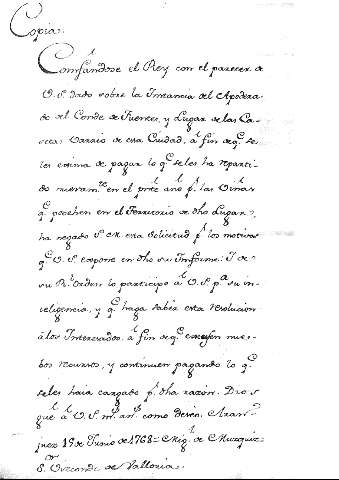 Copia.
Conformandose el Rey con el parecer de
V.S. dado sobre la Instancia del Apodera-
do del Conde de Fuentes, y Lugar de las Ca-
setas Varrio de esa Ciudad, á fin de q.e se
les exima de pagar lo q.e se les ha reparti-
do nuevam.te en el pres.te año p.r las Viñas
q.e posehen en el Territorio de dho Lugar,
ha negado S.M. esta solicitud p.r los motivos
q.e V.S. expone en dho su Informe: I de
su R.l Orden lo participo á V.S. p.a su in-
teligencia, y q.e haga saber esta resolucion
á los Interesados, á fin de q.e escusen nue-
bos recursos, y continuen pagando lo q.e
se les haia cargado p.r dha razon. Dios
gue á V.S. m.s an.s como deseo. Aran-
juez 18 de Junio de 1768 = Mig.l de Muzquiz =
S.or Vizconde de Valloria.